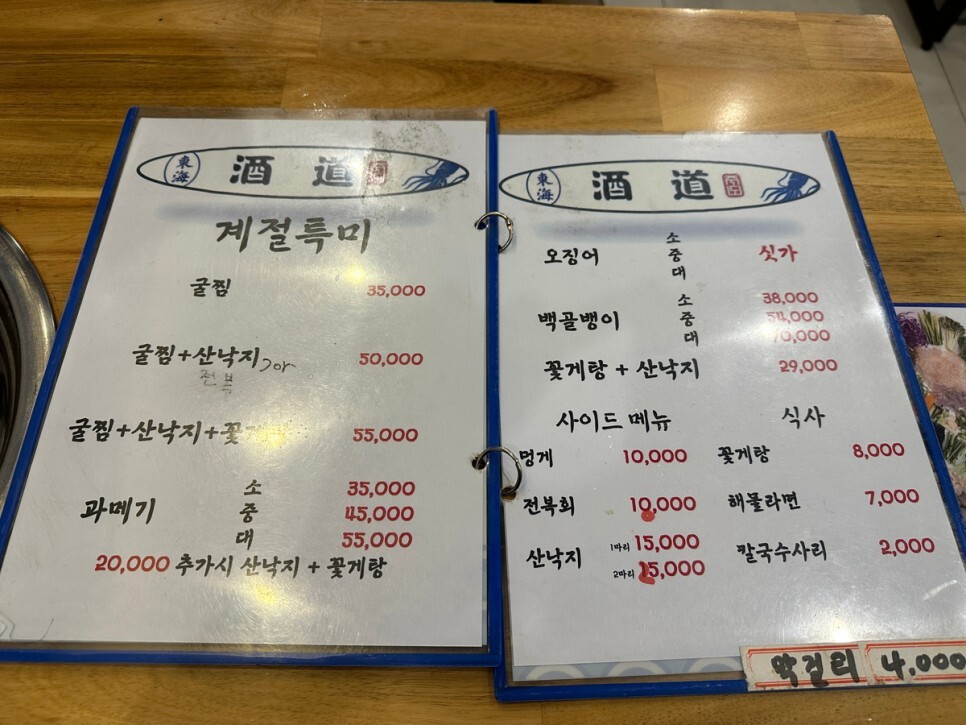 東海 酒道
계절특미
굴찜 35,000
굴찜+산낙지 or 50,000
전복
굴찜+산낙지+꽃 55,000
과메기 소 35,000
중 45,000
대 55,000
20,000 추가시 산낙지 + 꽃게탕
東海 酒道
오징어 소 중 대 싯가
백골뱅이 소 38,000
중 54,000
대 70,000
꽃게탕 + 산낙지 29,000
사이드 메뉴 식사
멍게 10,000 꽃게탕 8,000
전복회 10,000 해물라면 7,000
산낙지 1마리 15,000 칼국수사리 2,000
2마리
막걸리 4.000